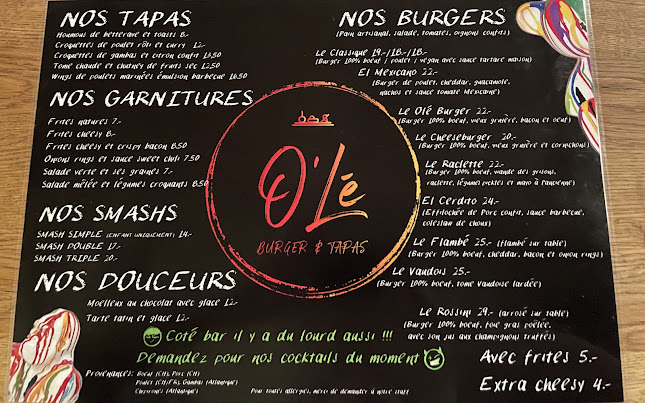 NOS TAPAS
Houmous de betterave et toasts 8.-
Croquettes de poulet rôti et curry 12.-
Croquettes de gambas et citron confit 13.50
Tome chaude et chutney de fruits sec 12.50
Wings de poulets marinées émulsion barbecue 16.50
NOS GARNITURES
Frites natures 7.-
Frites cheesy 8.-
Frites cheesy et crispy bacon 8.50
Onions rings et sauce sweet chili 7.50
Salade verte et ses graines 7.-
Salade mêlée et légumes croquants 8.50
NOS SMASHS
SMASH SIMPLE (ENFANT UNIQUEMENT) 14.-
SMASH DOUBLE 17.-
SMASH TRIPLE 20.-
NOS DOUCEURS
Moelleux au chocolat avec glace 12.-
Tarte tatin et glace 12.-
O'Lé
BURGER & TAPAS
NOS BURGERS
(Pain artisanal, salade, tomates, oignons confits)
Le Classique 19.-/18.-/18.-
(Burger 100% bœuf / poulet / végan avec sauce tartare maison)
El Mexicano 22.-
(Burger de poulet, cheddar, guacamole,
nachos et sauce tomate Mexicaine)
Le Olé Burger 22.-
(Burger 100% bœuf, vieux gruyère, bacon et œuf)
Le Cheeseburger 20.-
(Burger 100% bœuf, vieux gruyère et cornichons)
Le Raclette 22.-
(Burger 100% bœuf, viande des grisons,
raclette, légumes pickles et mayo à l'ancienne)
El Cerdito 24.-
(Effilochée de Porc confit, sauce barbecue,
coleslaw de choux)
Le Flambé 25.- (flambé sur table)
(Burger 100% bœuf, cheddar, bacon et onion rings)
Le Vaudois 25.-
(Burger 100% bœuf, tome Vaudoise lardée)
Le Rossini 29.- (arrosé sur table)
(Burger 100% bœuf, foie gras poêlée,
avec son jus aux champignons truffés)
Coté bar il y a du lourd aussi !!!
Demandez pour nos cocktails du moment !
Avec frites 5.-
Extra cheesy 4.-
Provenances: Bœuf (CH), Porc (CH)
Poulet (CH/FR), Gambas (Atlantique)
Crevettes (Atlantique)
Pour toutes allergies, merci de demander à notre staff